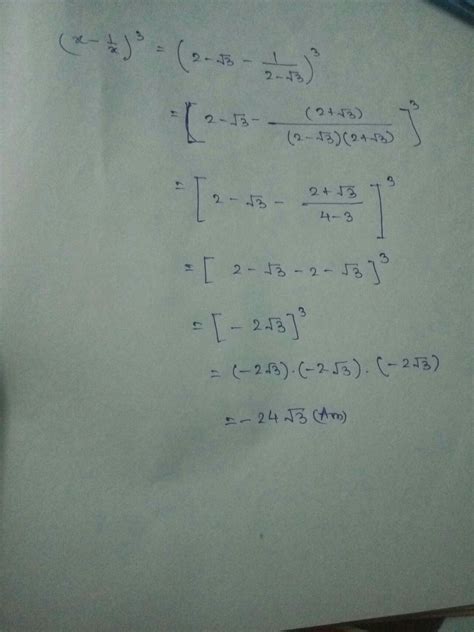 (x - 1/x)^3 = (2-√3 - 1/(2-√3))^3
= [2-√3 - (2+√3)/((2-√3)(2+√3))]^3
= [2-√3 - (2+√3)/(4-3)]^3
= [2-√3-2-√3]^3
= [-2√3]^3
= (-2√3).(-2√3).(-2√3)
= -24√3 (Ans)